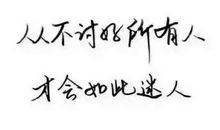 从不讨好所有人
才会如此迷人